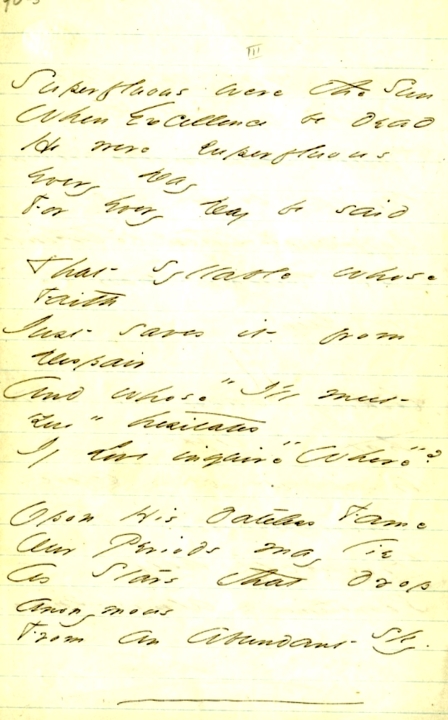 III
Superfluous were the Sun
When Excellence be dead
He were superfluous
every Day
For every Day be said
That Syllable whose
Faith
Just saves it from
Despair
And whose "I'll meet
You" hesitates
If Love inquire "Where"?
Upon His dateless Fame
Our Periods may lie
As Stars that drop
anonymous
From an abundant Sky.